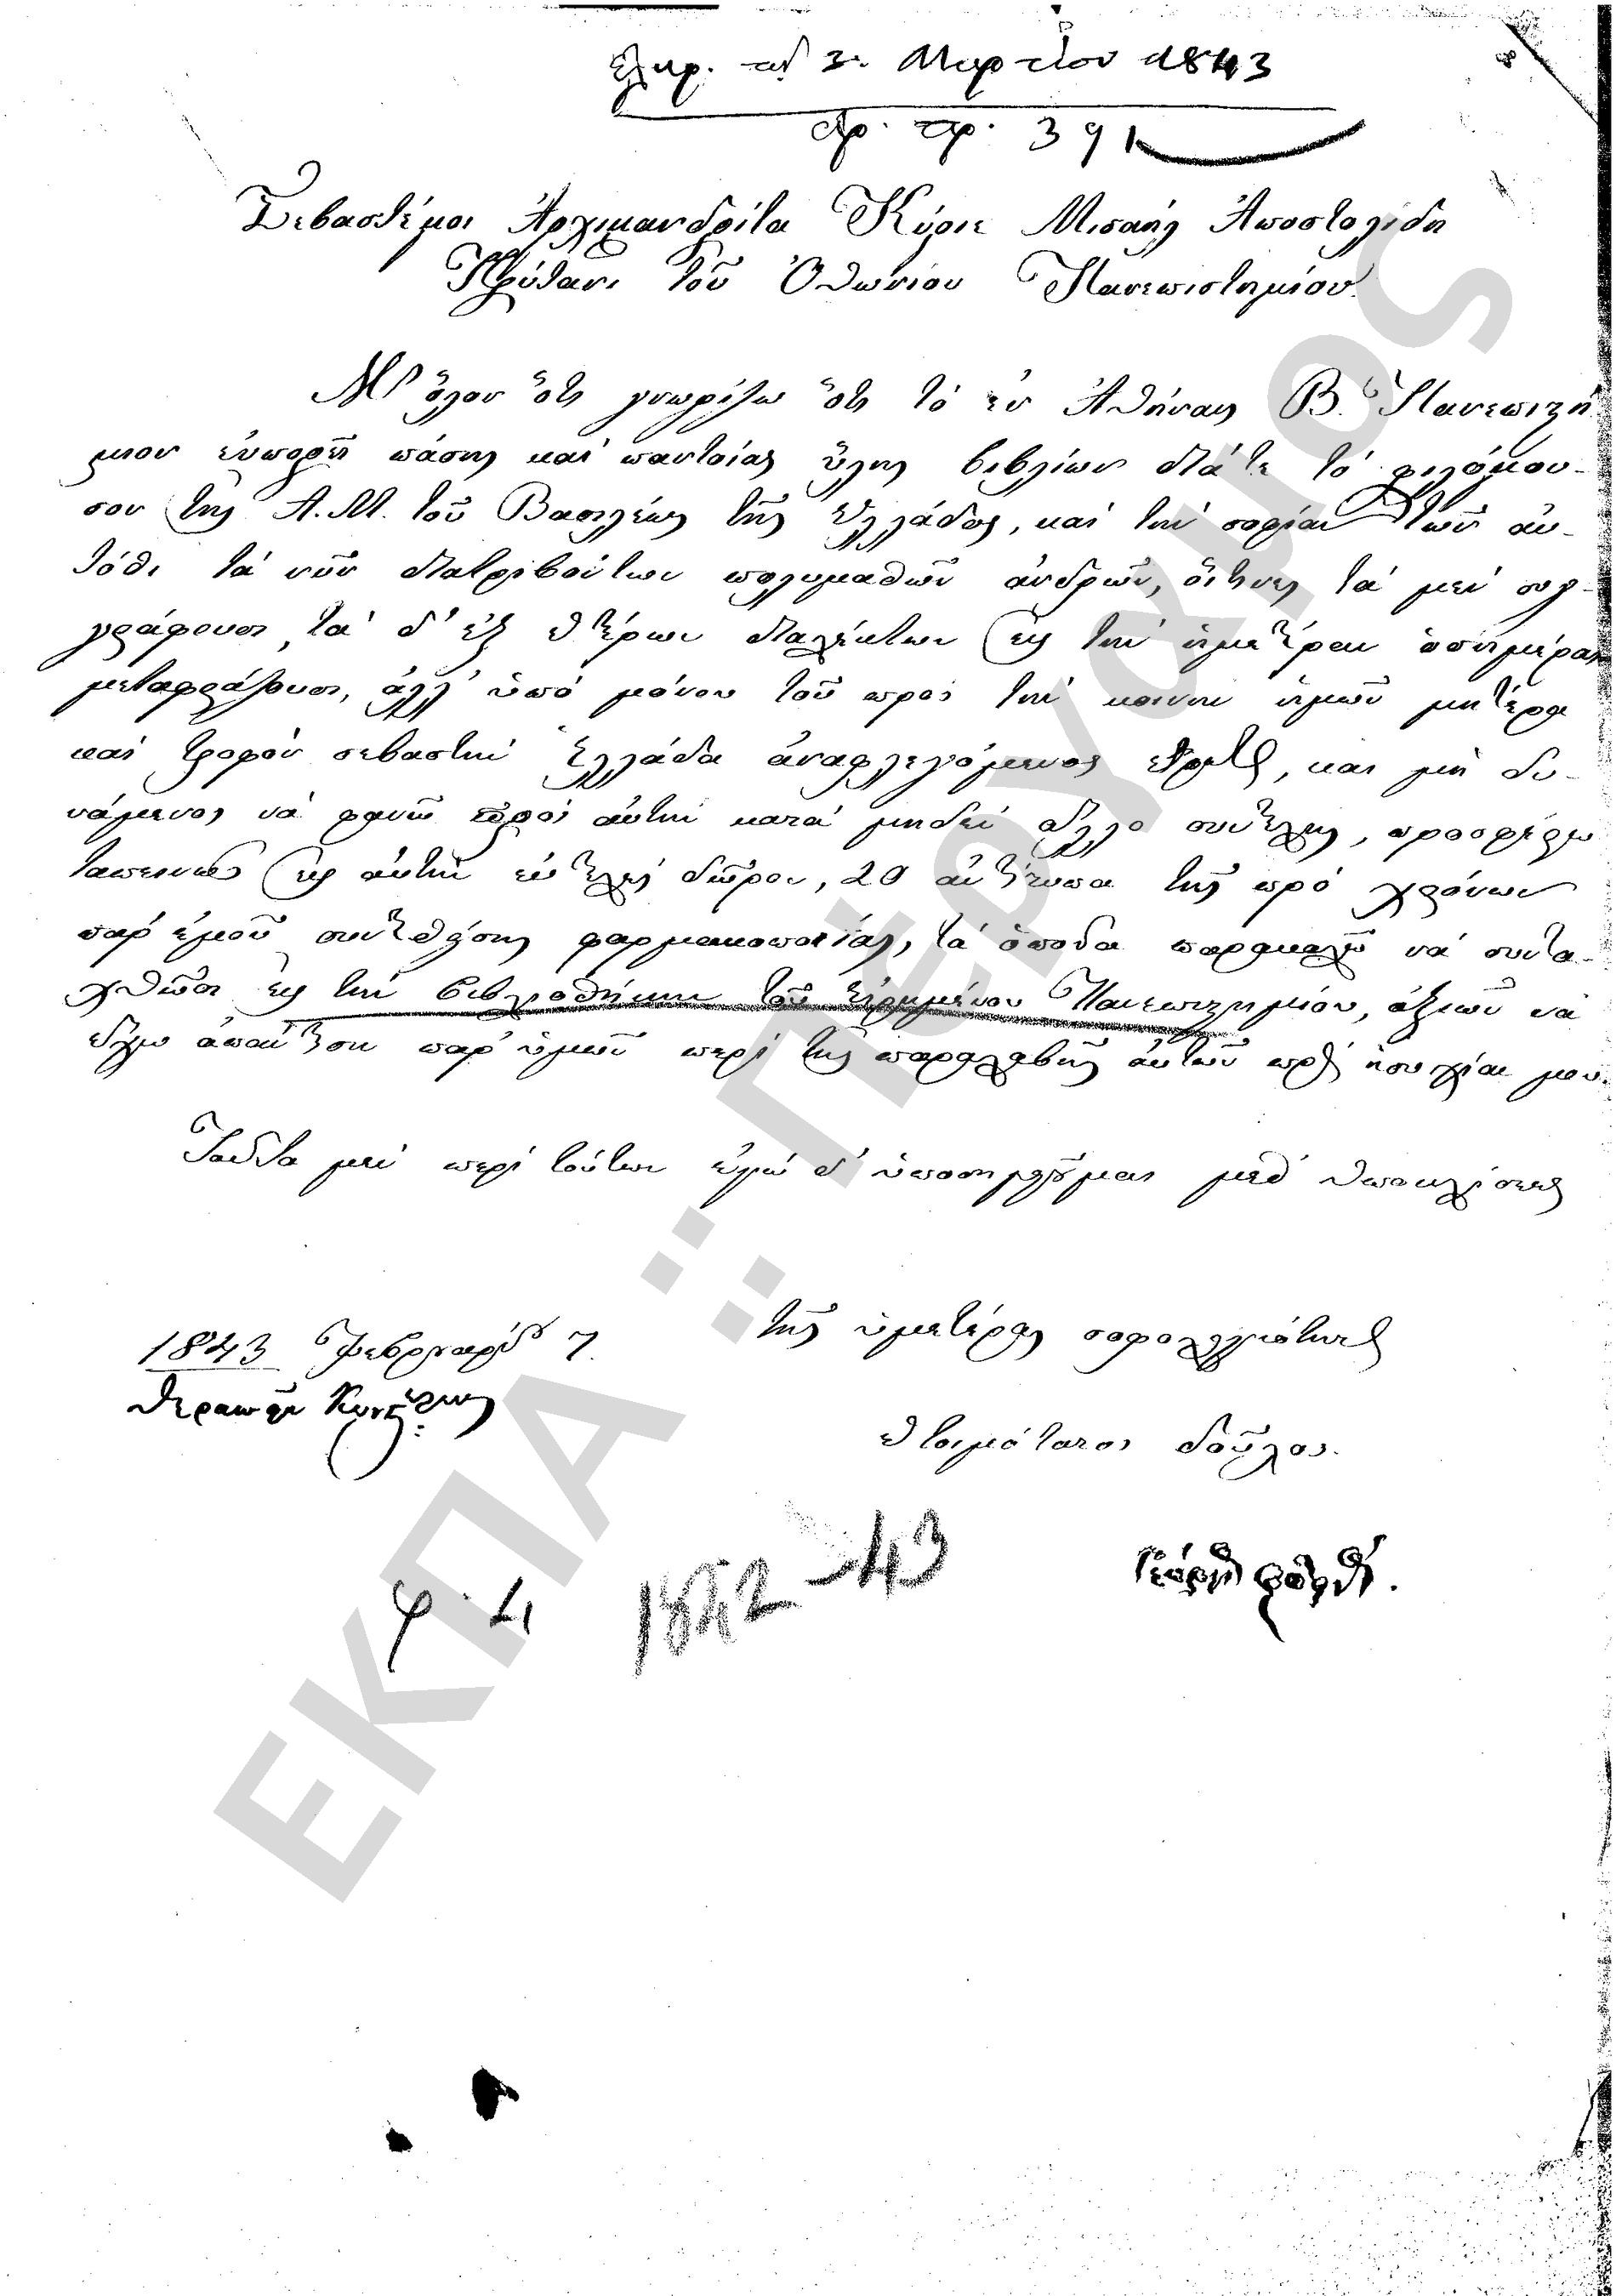 Ἐλήφ. τῇ 3. Μαρτίου 1843
Ἀρ. πρ. 391
Σεβαστέ μοι Ἀρχιμανδρίτα Κύριε Μισαὴλ Ἀποστολίδη
Πρύτανι τοῦ Ὀθωνείου Πανεπιστημίου.
Μ' ὅλον ὅτι γνωρίζω ὅτι τὸ ἐν Ἀθήναις Β. Πανεπιστή
μιον εὐπορεῖ πάσης καὶ παντοίας ὕλης βιβλίων διά τε τὸ φιλόμου-
σον τῆς Α. Μ. τοῦ Βασιλέως τῆς Ἑλλάδος, καὶ τὴν σοφίαν τῶν αὐ-
τόθι τὰ νῦν διατριβόντων πολυμαθῶν ἀνδρῶν, οἵτινες τὰ μὲν συγ-
γράφουσι, τὰ δ' ἐξ ἑτέρων διαλέκτων εἰς τὴν ἡμετέραν ὁσημέραι
μεταφράζουσι, ἀλλ' ὑπὸ μόνου τοῦ πρὸς τὴν κοινὴν ἡμῶν μητέρα
καὶ τροφὸν σεβαστὴν Ἑλλάδα ἀναφλεγόμενος ἔρωτος, και μὴ δυ-
νάμενος νὰ φανῶ πρὸς αὐτὴν κατὰ μηδὲν ἄλλο συντελὴς, προσφέρω
ταπεινῶς εἰς αὐτὴν εὐτελὲς δῶρον, 20 ἀντίτυπα τῆς πρὸ χρόνων
παρ' ἐμοῦ συντεθείσης φαρμακοποιίας, τὰ ὁποῖα παρακαλῶ νὰ συντα-
χθῶσι εἰς τὴν βιβλιοθήκην τοῦ εἰρημένου Πανεπιστημίου, ἀξιῶν νὰ
ἔχω ἀπάντησιν παρ' ὑμῶν περὶ τῆς παραλαβῆς αὐτῶν πρὸς ἡσυχίαν μου.
Ταῦτα μὲν περὶ τούτων ἐγὼ δ' ὑποσημειοῦμαι μεθ' ὑποκλίσεως
1843 Φεβρουαρίου 7.
τῆς ὑμετέρας σοφολογιότητος
Θεραπεῖα Κων/πόλεως
ἑτοιμότατος δοῦλος.
φ. 4 1842-43